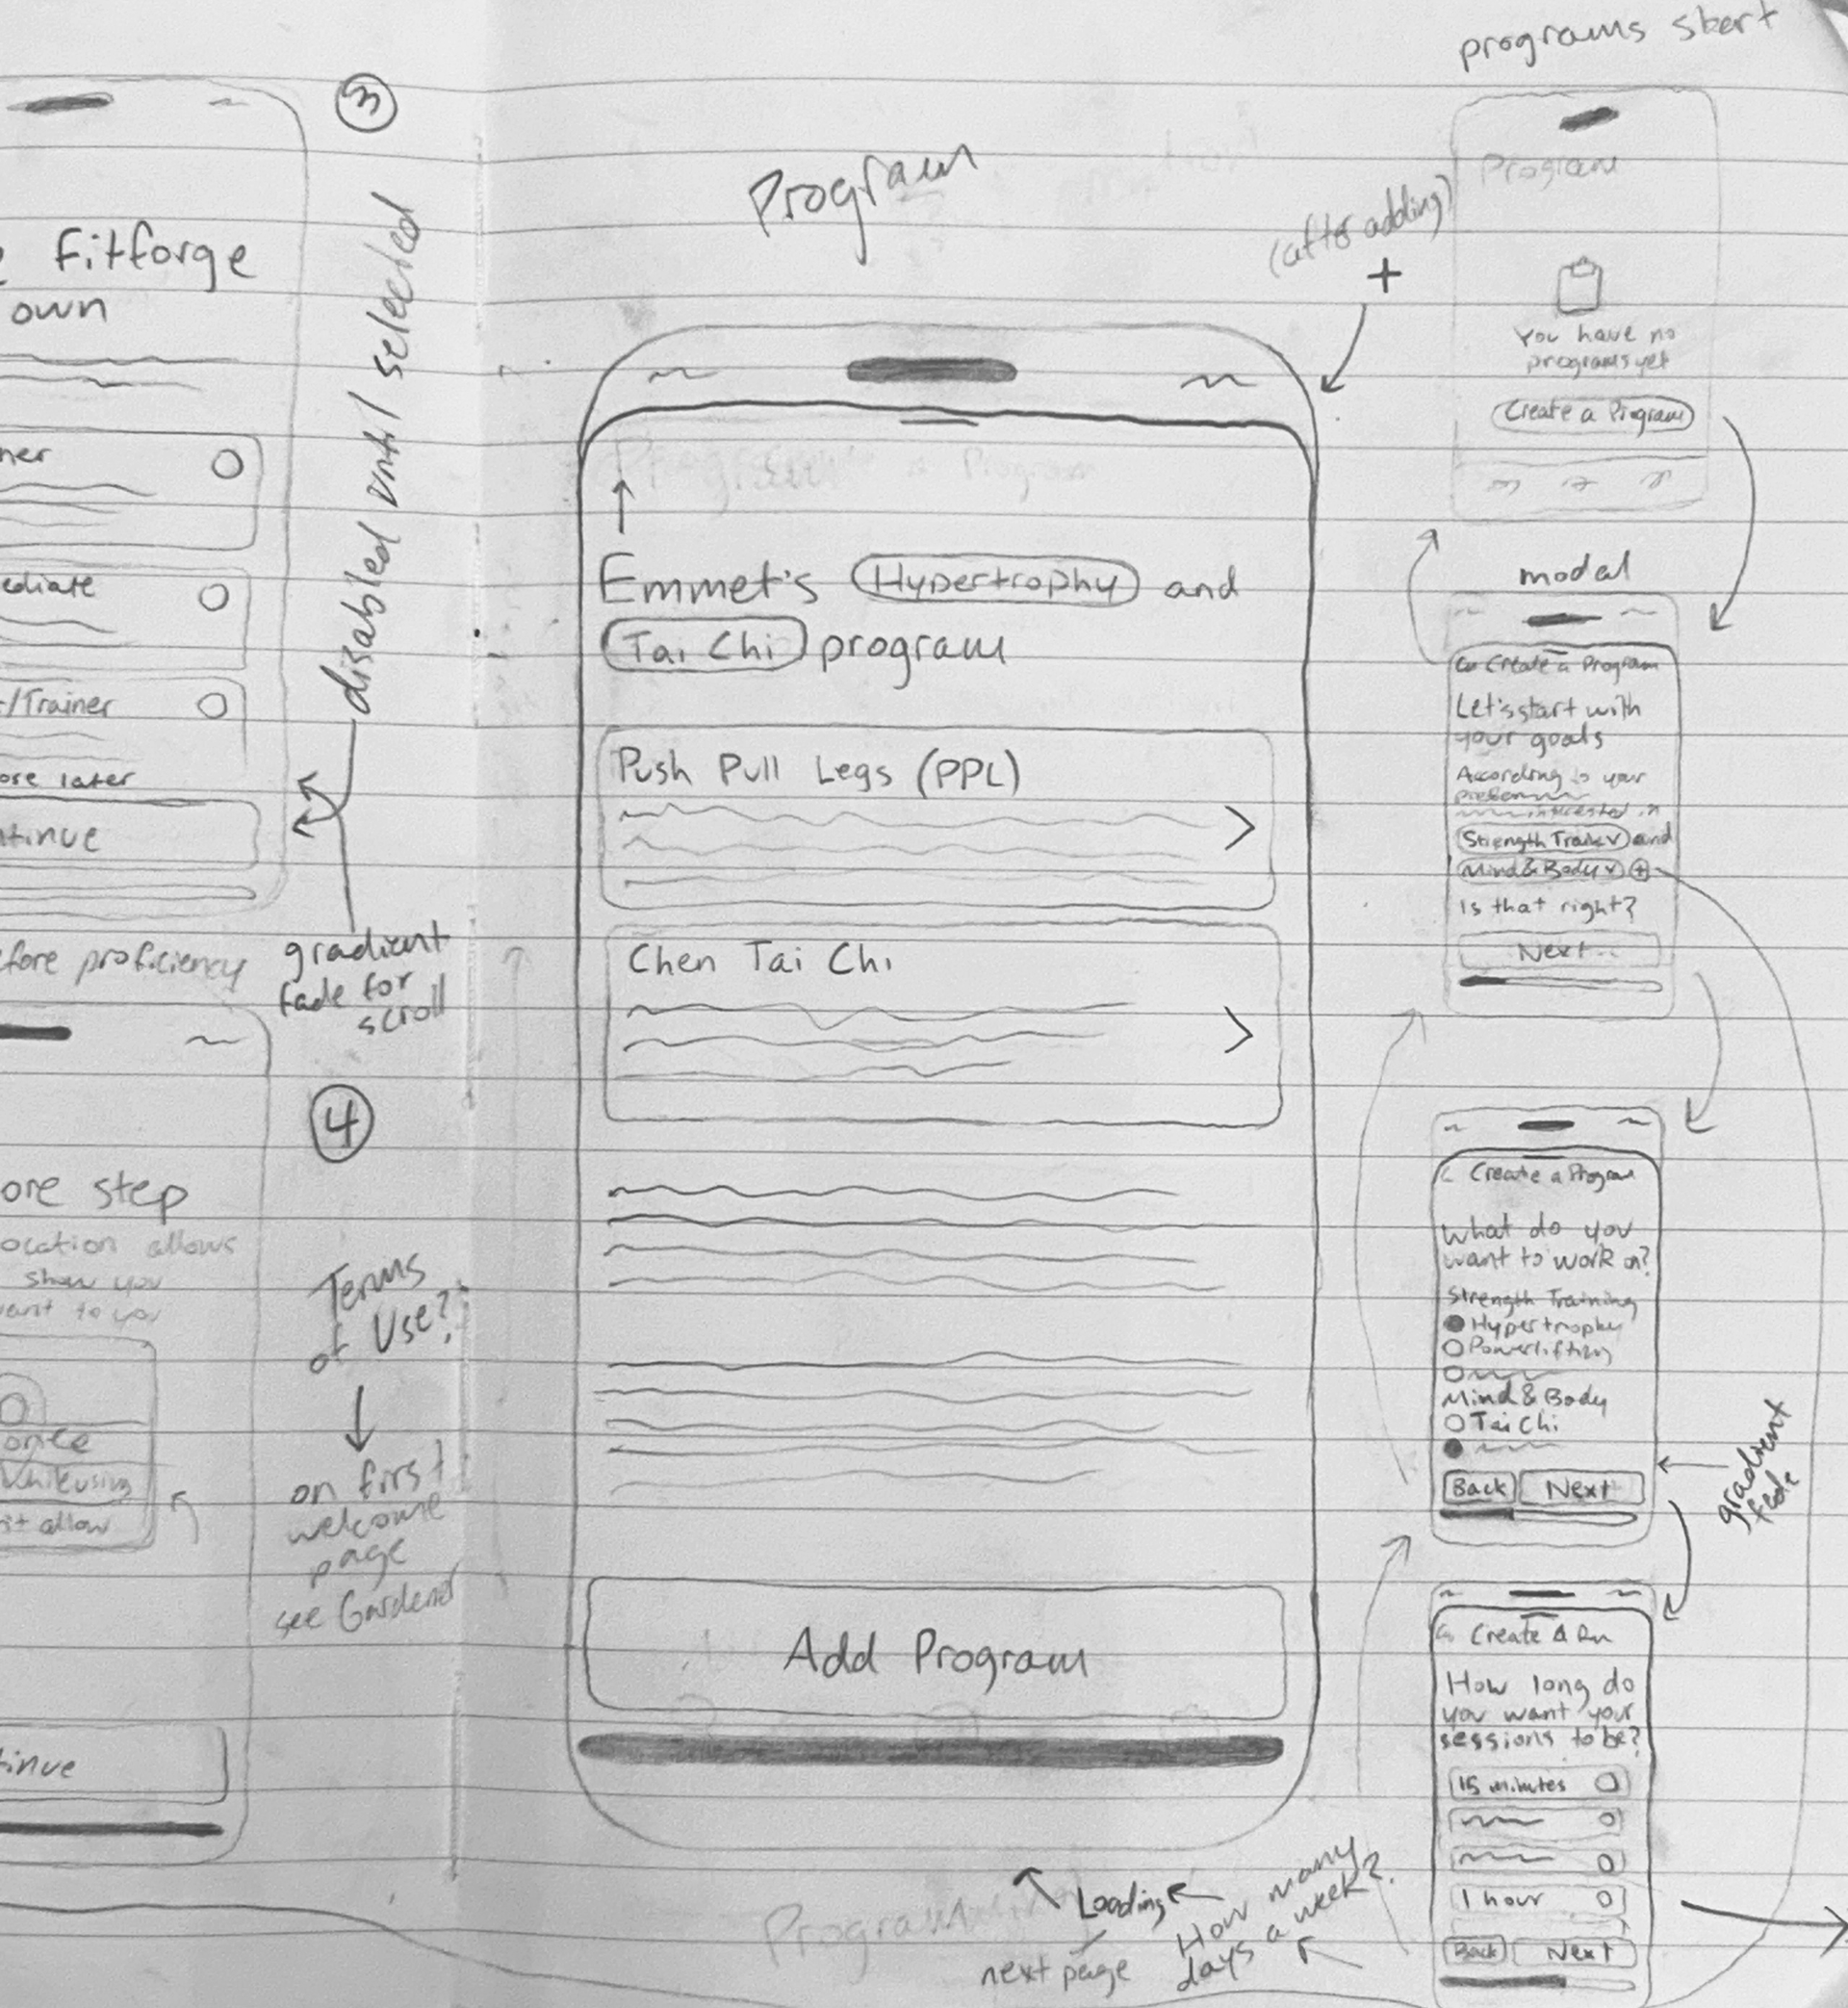 ③
Fitforge
own
disabled until selected
ner
ediate
/Trainer
ore later
ntinue
efore proficiency
gradient
fade for
scroll
④
ore step
ocation allows
show you
vant to you
once
while using
n't allow
tinue
Terms
of Use?
on first
welcome
page
see Gardener
Program
(after adding)
+
Emmet's Hypertrophy and
Tai Chi program
Push Pull Legs (PPL)
Chen Tai Chi
Add Program
Program
Loading
next page
How many
days a week?
programs start
Program
You have no
programs yet
Create a Program
modal
Create a Program
Let's start with
your goals
According to your
interested in
Strength Train and
Mind & Body +
Is that right?
Next
Create a Program
What do you
want to work on?
Strength Training
Hypertrophy
Powerlifting
Mind & Body
Tai Chi
Back Next
gradient
fade
Create A
How long do
you want your
sessions to be?
15 minutes
1 hour
Back Next